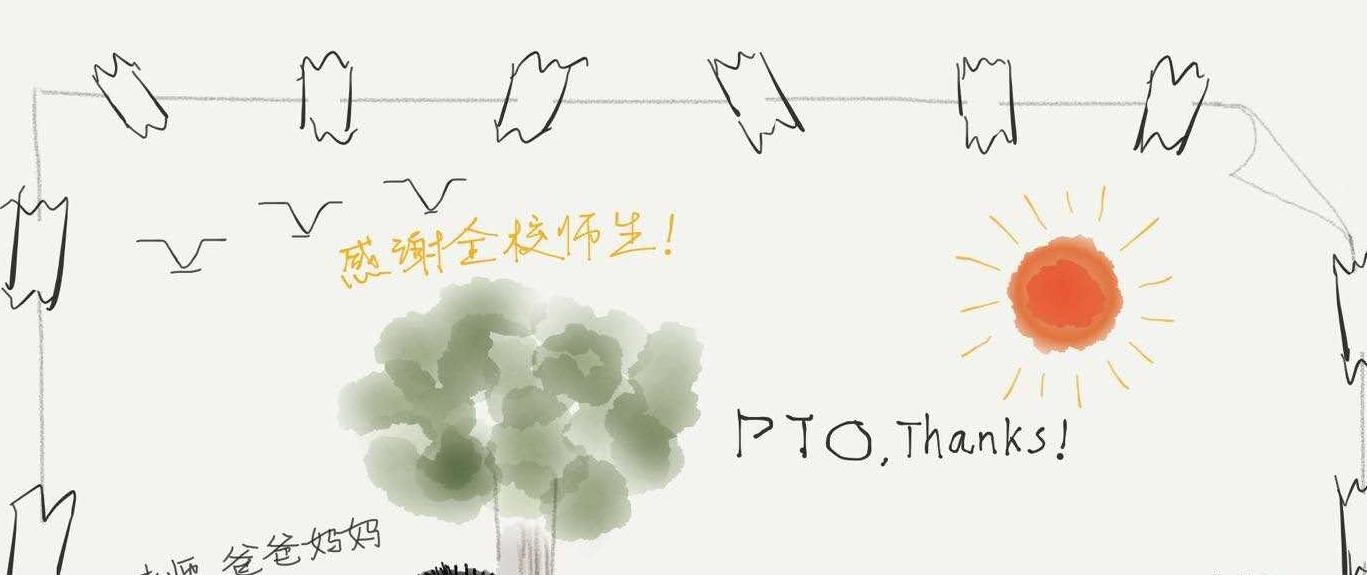 感谢全校师生!
PTO,Thanks!
老师 爸爸妈妈